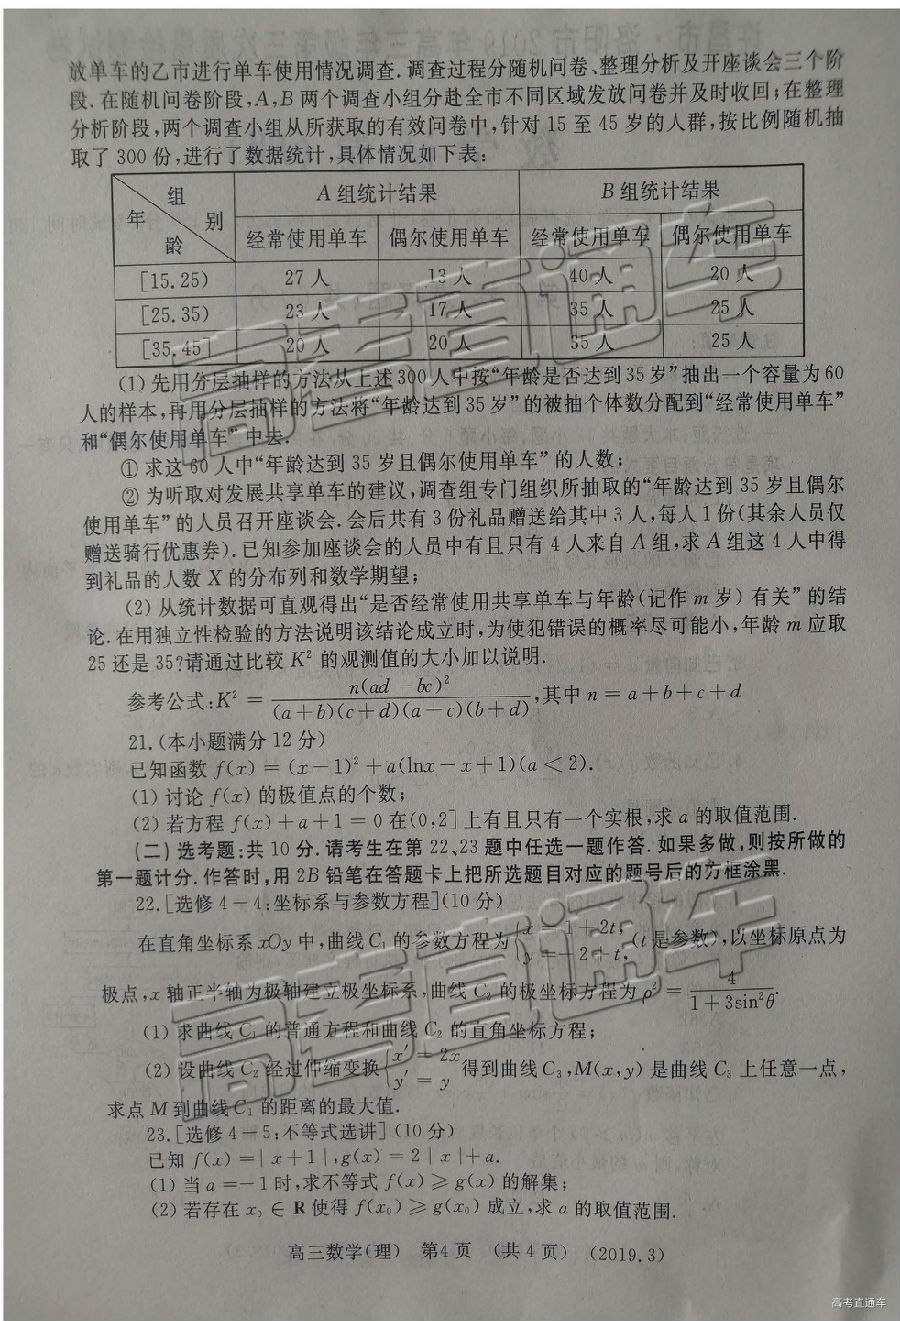 放单车的乙市进行单车使用情况调查.调查过程分随机问卷、整理分析及开座谈会三个阶
段.在随机问卷阶段,A,B 两个调查小组分赴全市不同区域发放问卷并及时收回;在整理
分析阶段,两个调查小组从所获取的有效问卷中,针对 15 至 45 岁的人群,按比例随机抽
取了 300 份,进行了数据统计,具体情况如下表:
组别 年龄 A 组统计结果 B 组统计结果
经常使用单车 偶尔使用单车 经常使用单车 偶尔使用单车
[15.25) 27 人 13 人 40 人 20 人
[25.35) 23 人 17 人 35 人 25 人
[35.45] 20 人 20 人 35 人 25 人
(1) 先用分层抽样的方法从上述 300 人中按“年龄是否达到 35 岁”抽出一个容量为 60
人的样本,再用分层抽样的方法将“年龄达到 35 岁”的被抽个体数分配到“经常使用单车”
和“偶尔使用单车”中去.
① 求这 60 人中“年龄达到 35 岁且偶尔使用单车”的人数;
② 为听取对发展共享单车的建议,调查组专门组织所抽取的“年龄达到 35 岁且偶尔
使用单车”的人员召开座谈会.会后共有 3 份礼品赠送给其中 3 人,每人 1 份(其余人员仅
赠送骑行优惠券).已知参加座谈会的人员中有且只有 4 人来自 A 组,求 A 组这 4 人中得
到礼品的人数 X 的分布列和数学期望;
(2) 从统计数据可直观得出“是否经常使用共享单车与年龄(记作 m 岁) 有关”的结
论.在用独立性检验的方法说明该结论成立时,为使犯错误的概率尽可能小,年龄 m 应取
25 还是 35?请通过比较 K² 的观测值的大小加以说明.
参考公式:K² = n(ad - bc)² / (a+b)(c+d)(a-c)(b+d),其中 n = a+b+c+d
21.(本小题满分 12 分)
已知函数 f(x) = (x-1)² + a(lnx-x+1)(a<2).
(1) 讨论 f(x) 的极值点的个数;
(2) 若方程 f(x)+a+1=0 在(0,2] 上有且只有一个实根,求 a 的取值范围.
(二) 选考题:共 10 分.请考生在第 22、23 题中任选一题作答.如果多做,则按所做的
第一题计分.作答时,用 2B 铅笔在答题卡上把所选题目对应的题号后的方框涂黑.
22.[选修 4-4:坐标系与参数方程](10 分)
在直角坐标系 xOy 中,曲线 C₁ 的参数方程为 { x = 1+2t, y = -2+t, (t 是参数),以坐标原点为
极点,x 轴正半轴为极轴建立极坐标系,曲线 C₂ 的极坐标方程为 ρ² = 4 / 1+3sin²θ.
(1) 求曲线 C₁ 的普通方程和曲线 C₂ 的直角坐标方程;
(2) 设曲线 C₂ 经过伸缩变换 { x′ = 2x y′ = y 得到曲线 C₃,M(x,y) 是曲线 C₃ 上任意一点,
求点 M 到曲线 C₁ 的距离的最大值.
23.[选修 4-5:不等式选讲] (10 分)
已知 f(x) = | x+1 |,g(x) = 2 | x | + a.
(1) 当 a =-1 时,求不等式 f(x) ⩾ g(x) 的解集;
(2) 若存在 x₀ ∈ R 使得 f(x₀) ⩾ g(x₀) 成立,求 a 的取值范围.
高三数学(理) 第4页 (共 4 页) (2019.3)
高考直通车
高考直通车
高考直通车